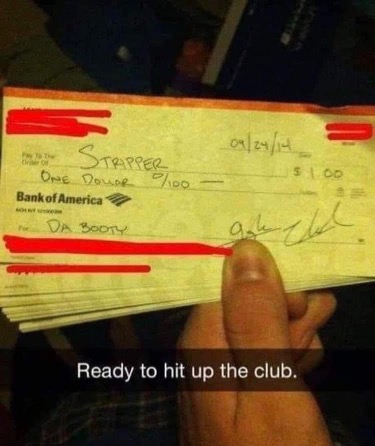 04/24/14
Pay To The
Order Of STRAPPER
$ 1.00
ONE DOLLAR 0/100
Bank of America
For DA BOOTY
Ready to hit up the club.